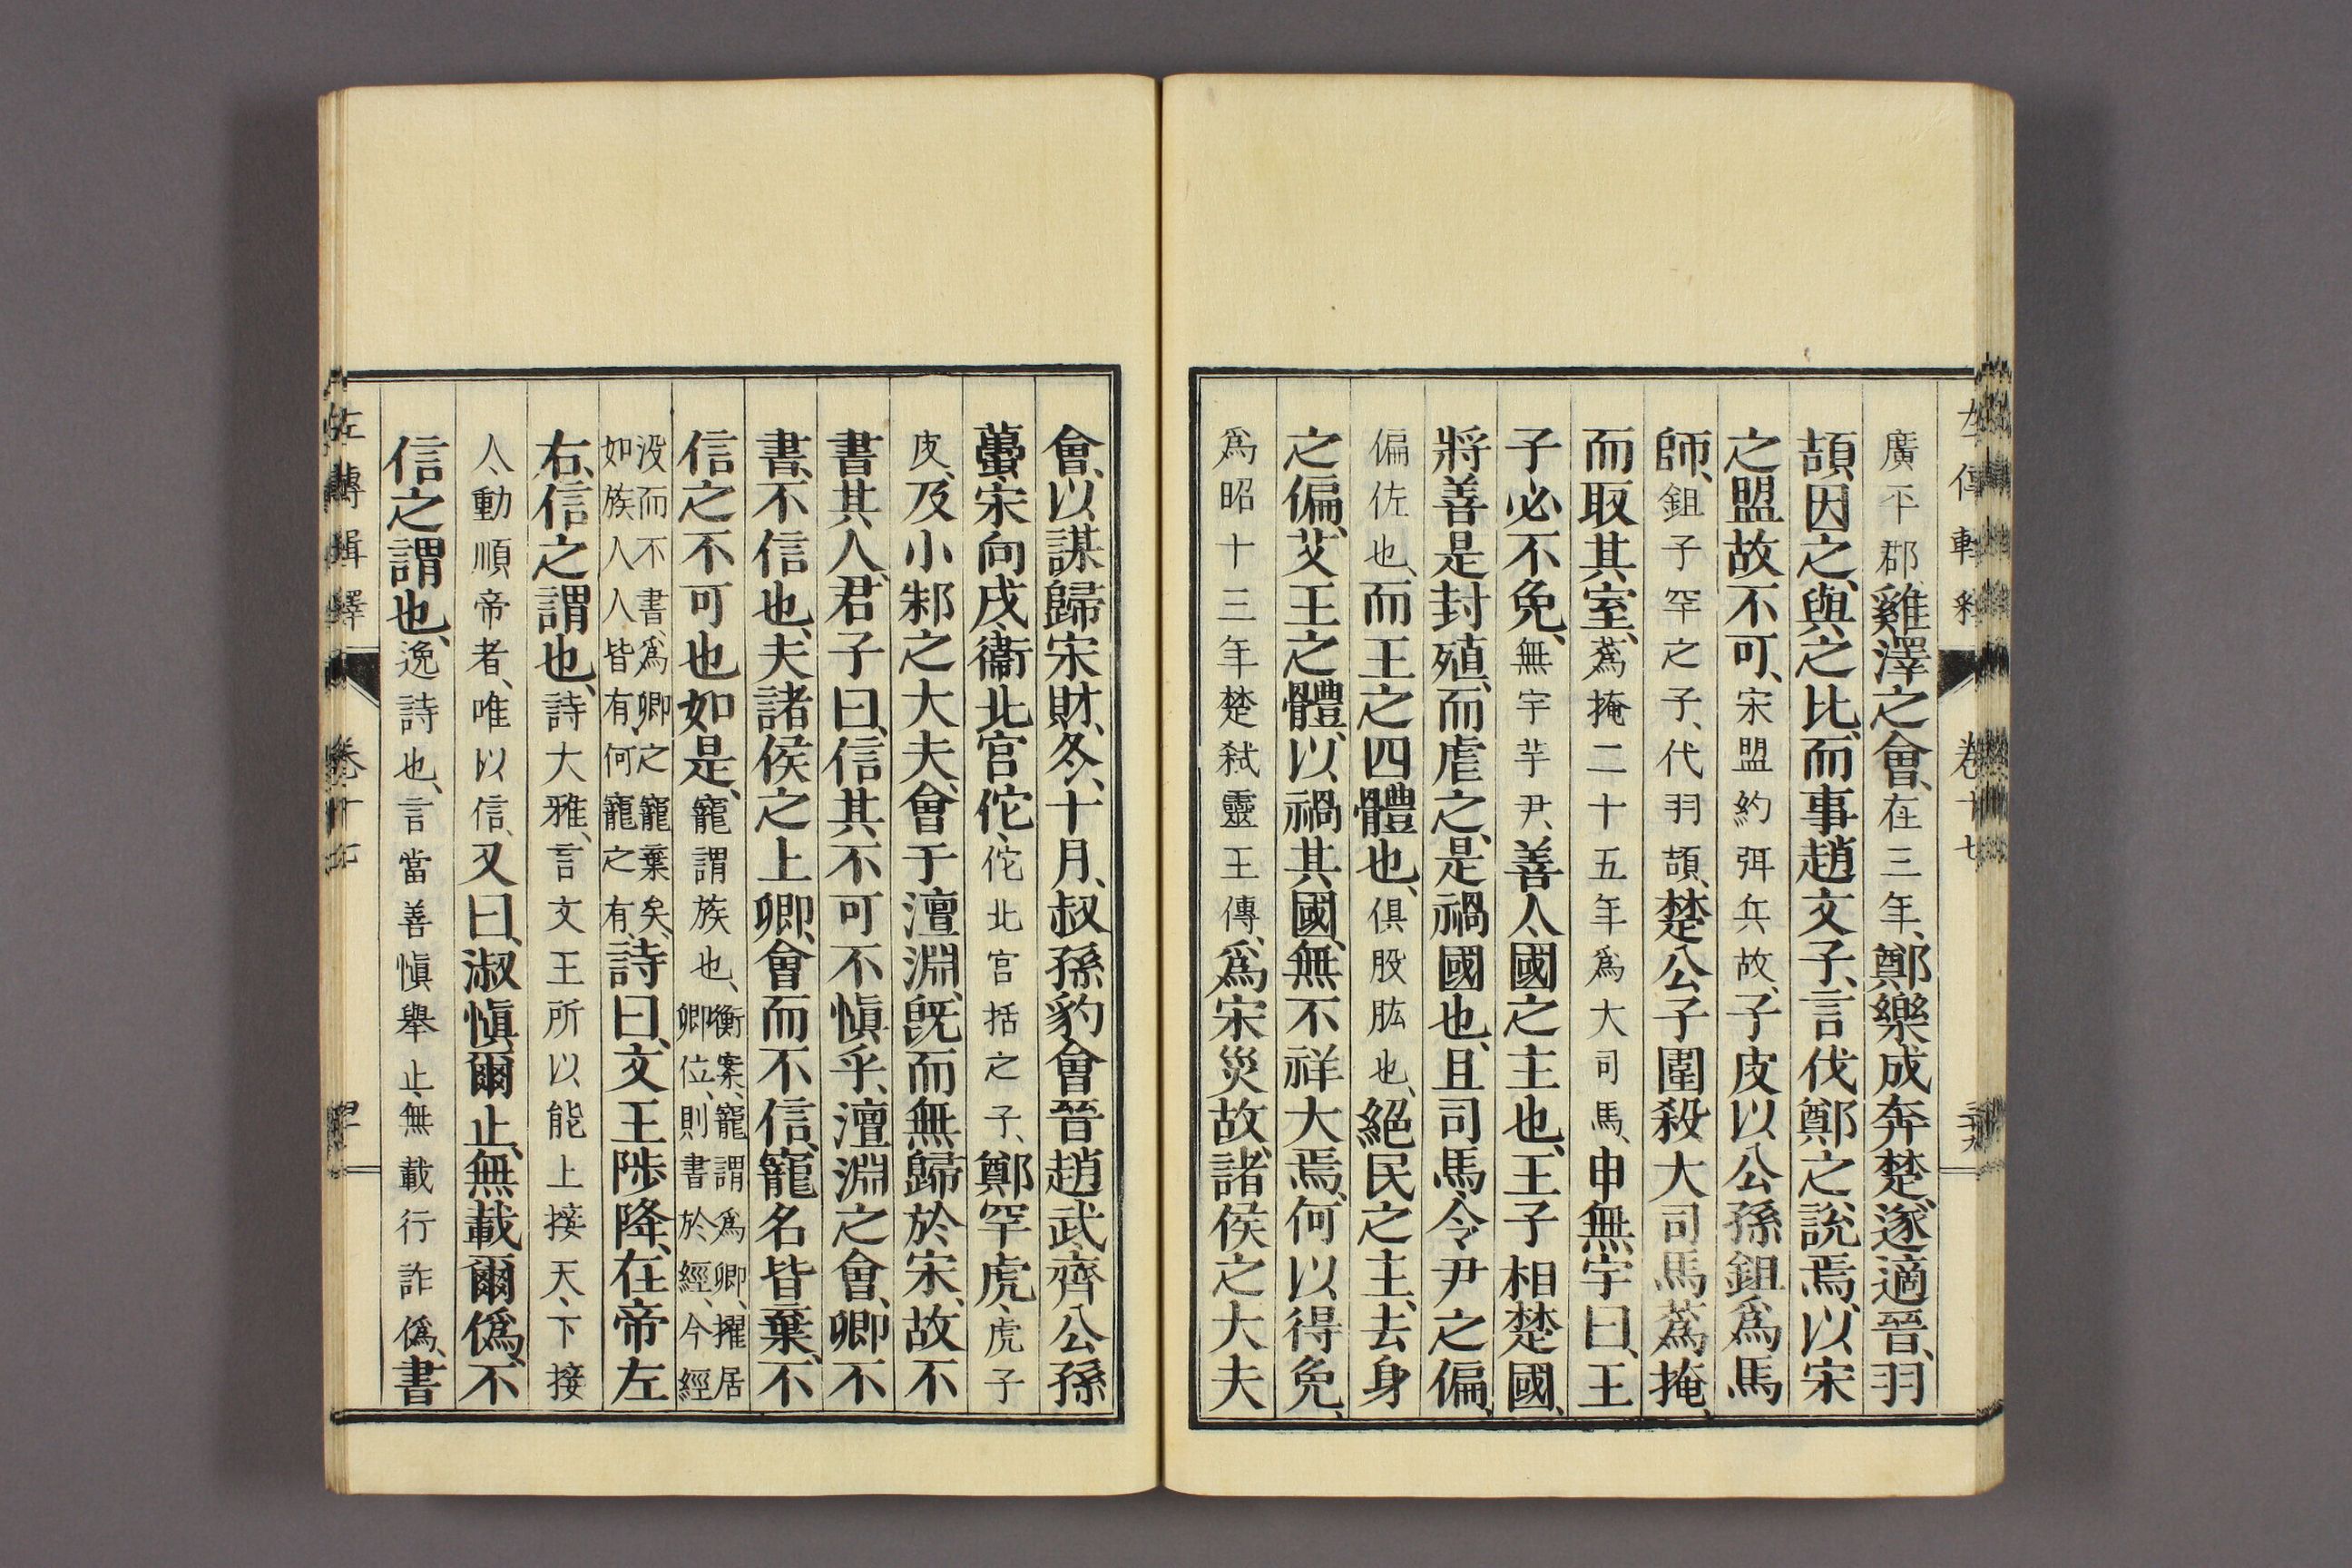 廣平郡、雞澤之會、在三年、鄭樂成奔楚、遂適晉、羽
頡、因之、與之比、而事趙文子、言伐鄭之說焉、以宋
之盟故不可、宋盟約弭兵故、子皮以公孫鉏爲馬
師、鉏子罕之子、代羽頡、楚公子圍殺大司馬蒍掩、
而取其室、蒍掩二十五年爲大司馬、申無宇曰、王
子必不免、無宇芋尹、善人、國之主也、王子相楚國、
將善是封殖、而虐之、是禍國也、且司馬、令尹之偏、
偏佐也、而王之四體也、俱股肱也、絕民之主、去身
之偏、艾王之體、以禍其國、無不祥大焉、何以得免、
爲昭十三年楚弒靈王傳、爲宋災故、諸侯之大夫
會、以謀歸宋財、冬、十月、叔孫豹會晉趙武、齊公孫
蠆、宋向戌、衞北宮佗、佗北宮括之子、鄭罕虎、虎子
皮、及小邾之大夫、會于澶淵、旣而無歸於宋、故不
書其人、君子曰、信其不可不愼乎、澶淵之會、卿不
書、不信也、夫諸侯之上卿、會而不信、寵名皆棄、不
信之不可也如是、寵謂族也、衡案、寵謂爲卿、擢居
卿位、則書於經、今經
沒而不書、爲卿之寵棄矣、
如族人人皆有、何寵之有、詩曰、文王陟降、在帝左
右、信之謂也、詩大雅、言文王所以能上接天、下接
人、動順帝者、唯以信、又曰、淑愼爾止、無載爾僞、不
信之謂也、逸詩也、言當善愼舉止、無載行詐僞、書
左傳輯釋 卷十七